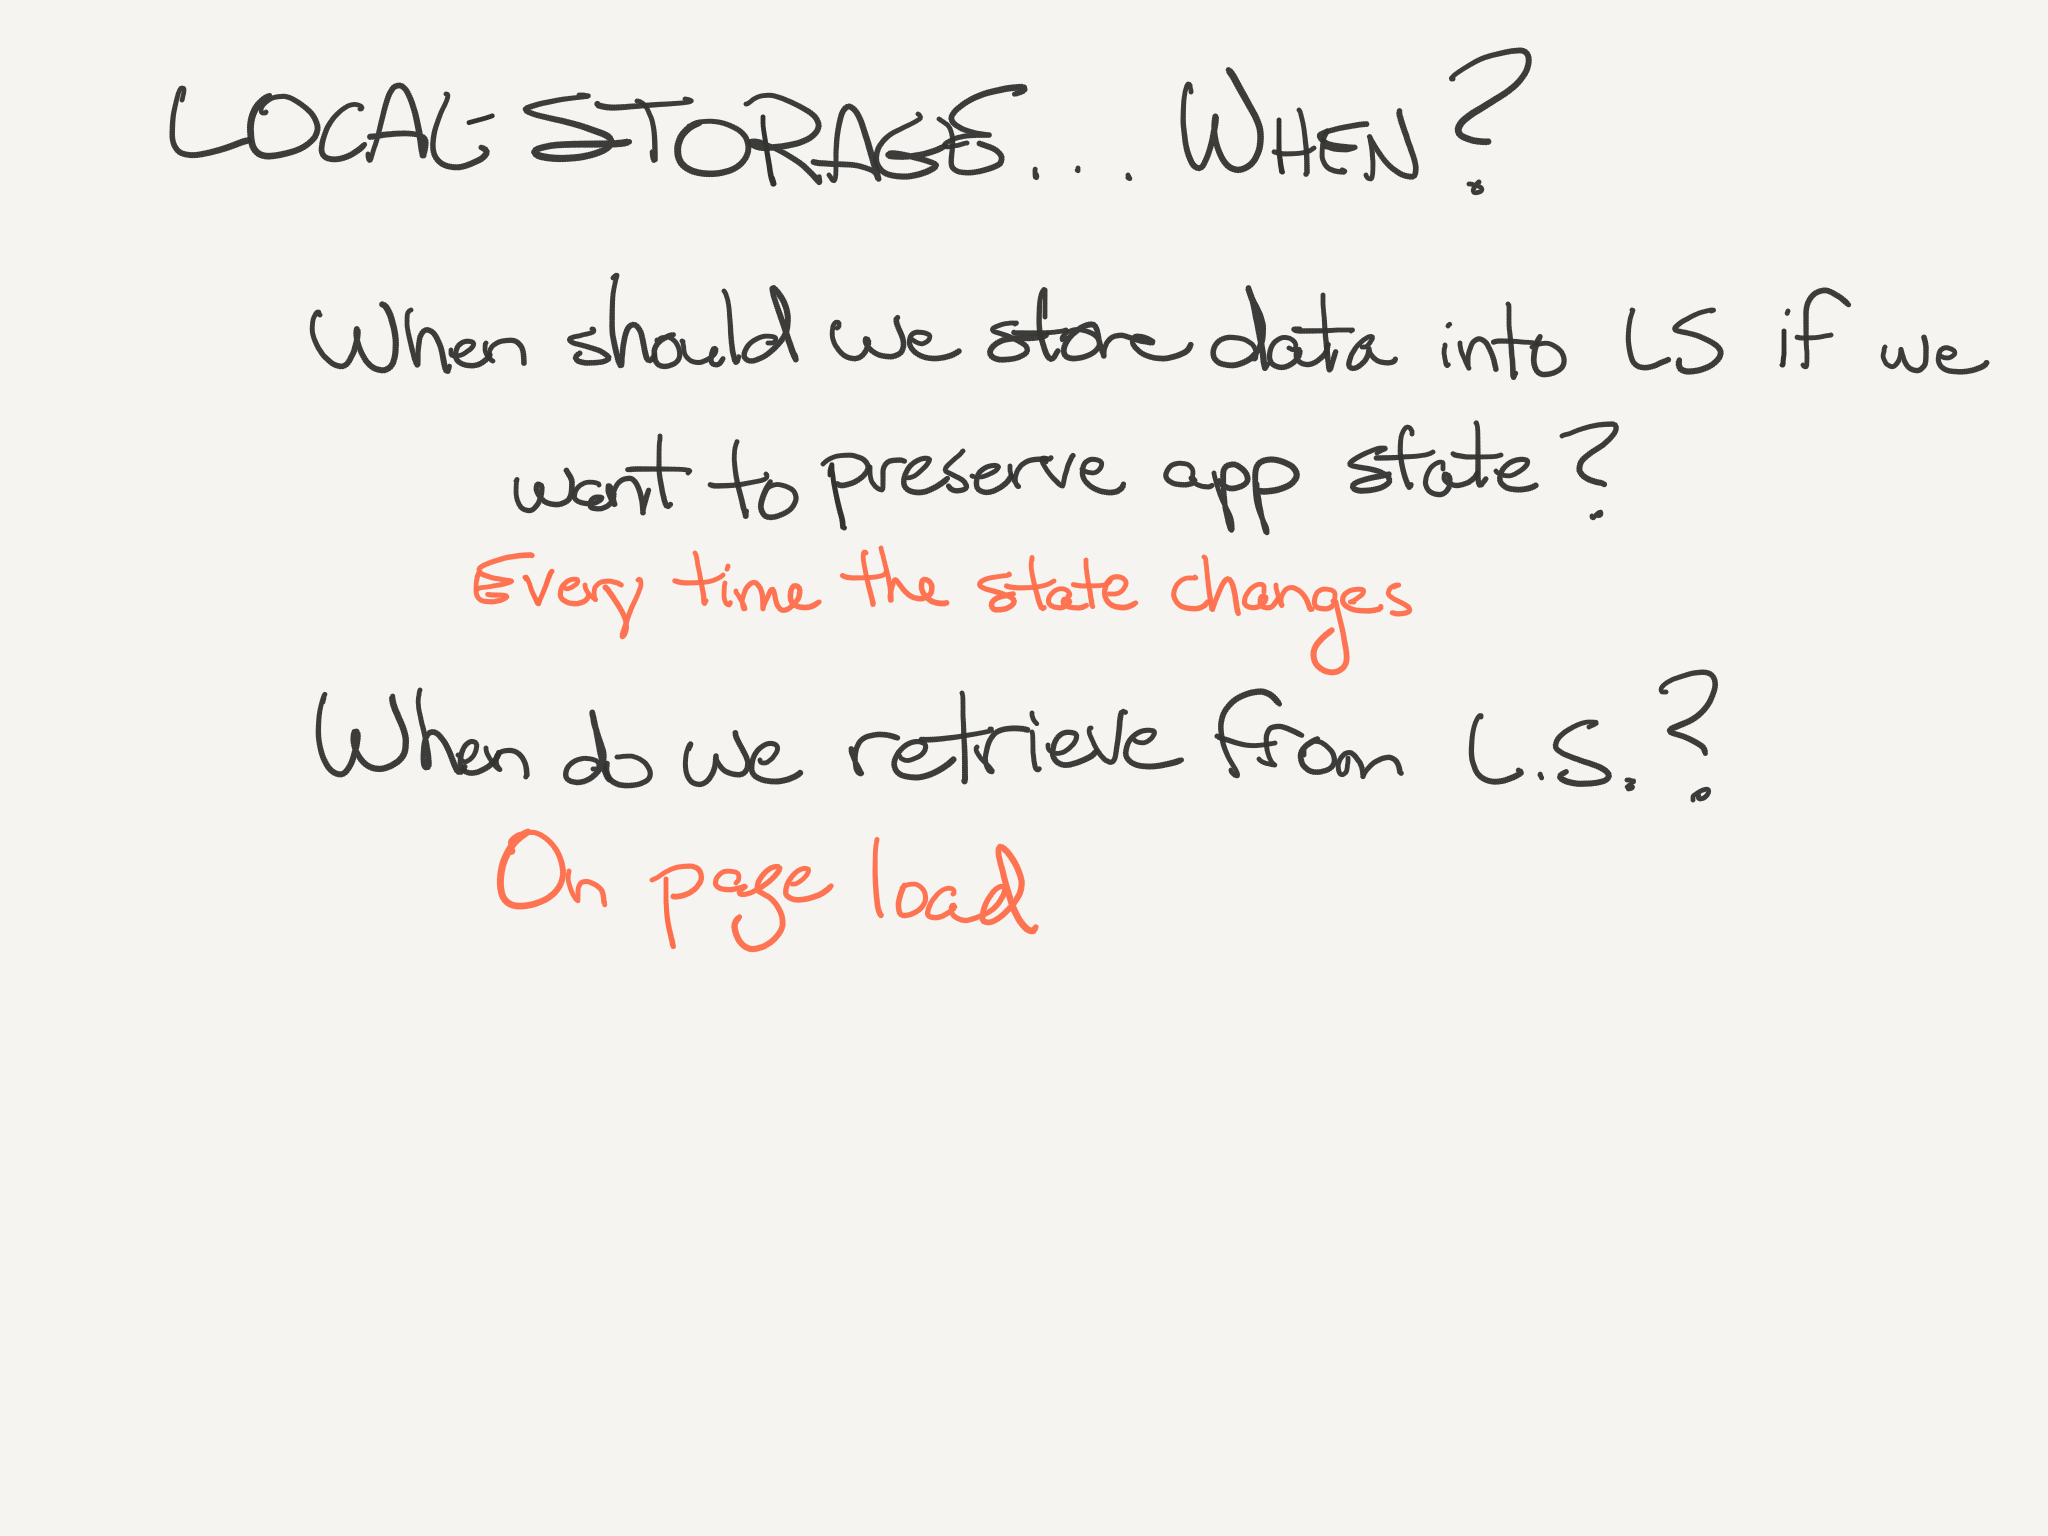 LOCAL STORAGE... WHEN?
When should we store data into LS if we
want to preserve app state?
Every time the state changes
When do we retrieve from L.S.?
On page load